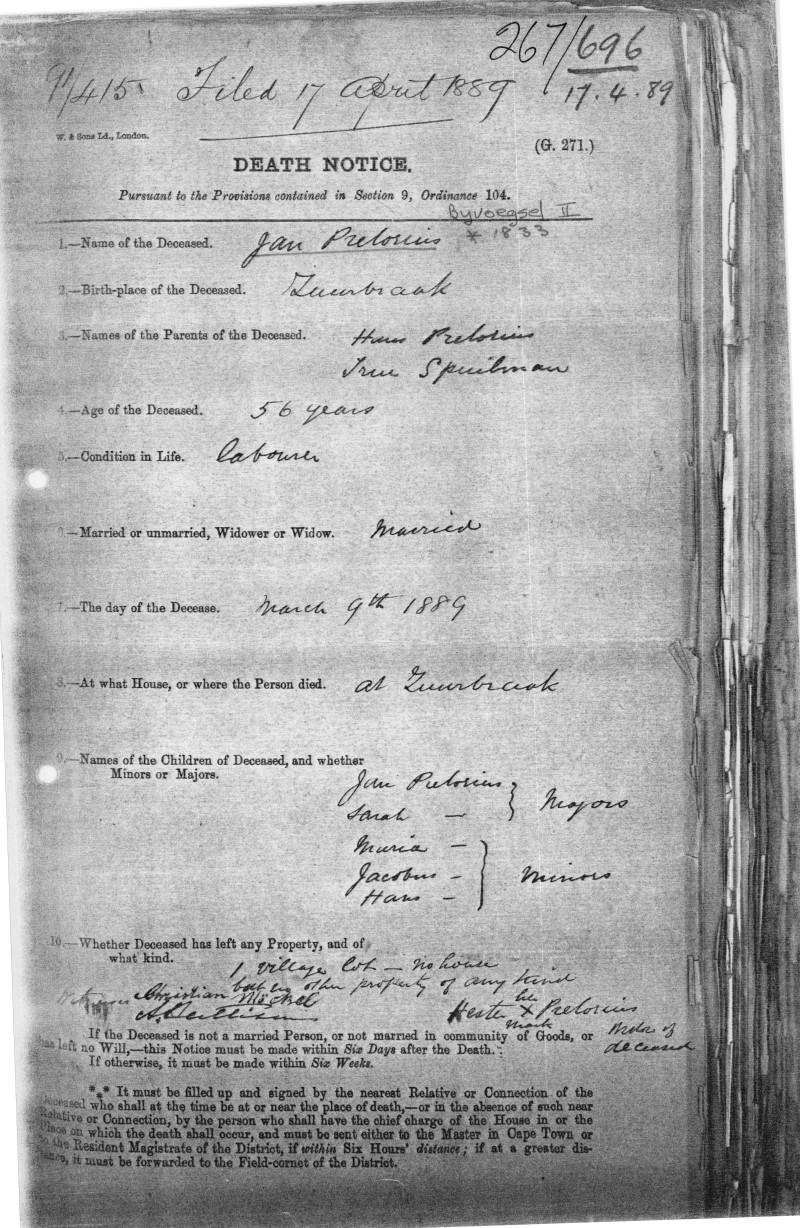 267/696
9/415 Filed 17 April 1889 17.4.89
W. & Sons Ld., London.
(G. 271.)
DEATH NOTICE.
Pursuant to the Provisions contained in Section 9, Ordinance 104.
Byvoegsel II
1.—Name of the Deceased. Jan Pretorius * 1833
2.—Birth-place of the Deceased. Zuurbraak
3.—Names of the Parents of the Deceased. Hans Pretorius
Trui Spuilman
4.—Age of the Deceased. 56 years
5.—Condition in Life. labourer
6.—Married or unmarried, Widower or Widow. Married
7.—The day of the Decease. March 9th 1889
8.—At what House, or where the Person died. at Zuurbraak
9.—Names of the Children of Deceased, and whether
Minors or Majors.
Jan Pretorius
Sarah — } Majors
Maria —
Jacobus — } Minors
Hans —
10.—Whether Deceased has left any Property, and of
what kind. 1 village lot — no house
but no other property of any kind
Witnesses Christian Möckel
Hester her X mark Pretorius
Widow of deceased
If the Deceased is not a married Person, or not married in community of Goods, or
has left no Will,—this Notice must be made within Six Days after the Death.
If otherwise, it must be made within Six Weeks.
*** It must be filled up and signed by the nearest Relative or Connection of the
Deceased who shall at the time be at or near the place of death,—or in the absence of such near
Relative or Connection, by the person who shall have the chief charge of the House in or the
Place on which the death shall occur, and must be sent either to the Master in Cape Town or
to the Resident Magistrate of the District, if within Six Hours' distance; if at a greater dis-
tance, it must be forwarded to the Field-cornet of the District.